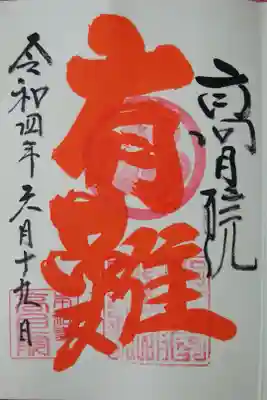 高月院
有難
令和四年六月十九日